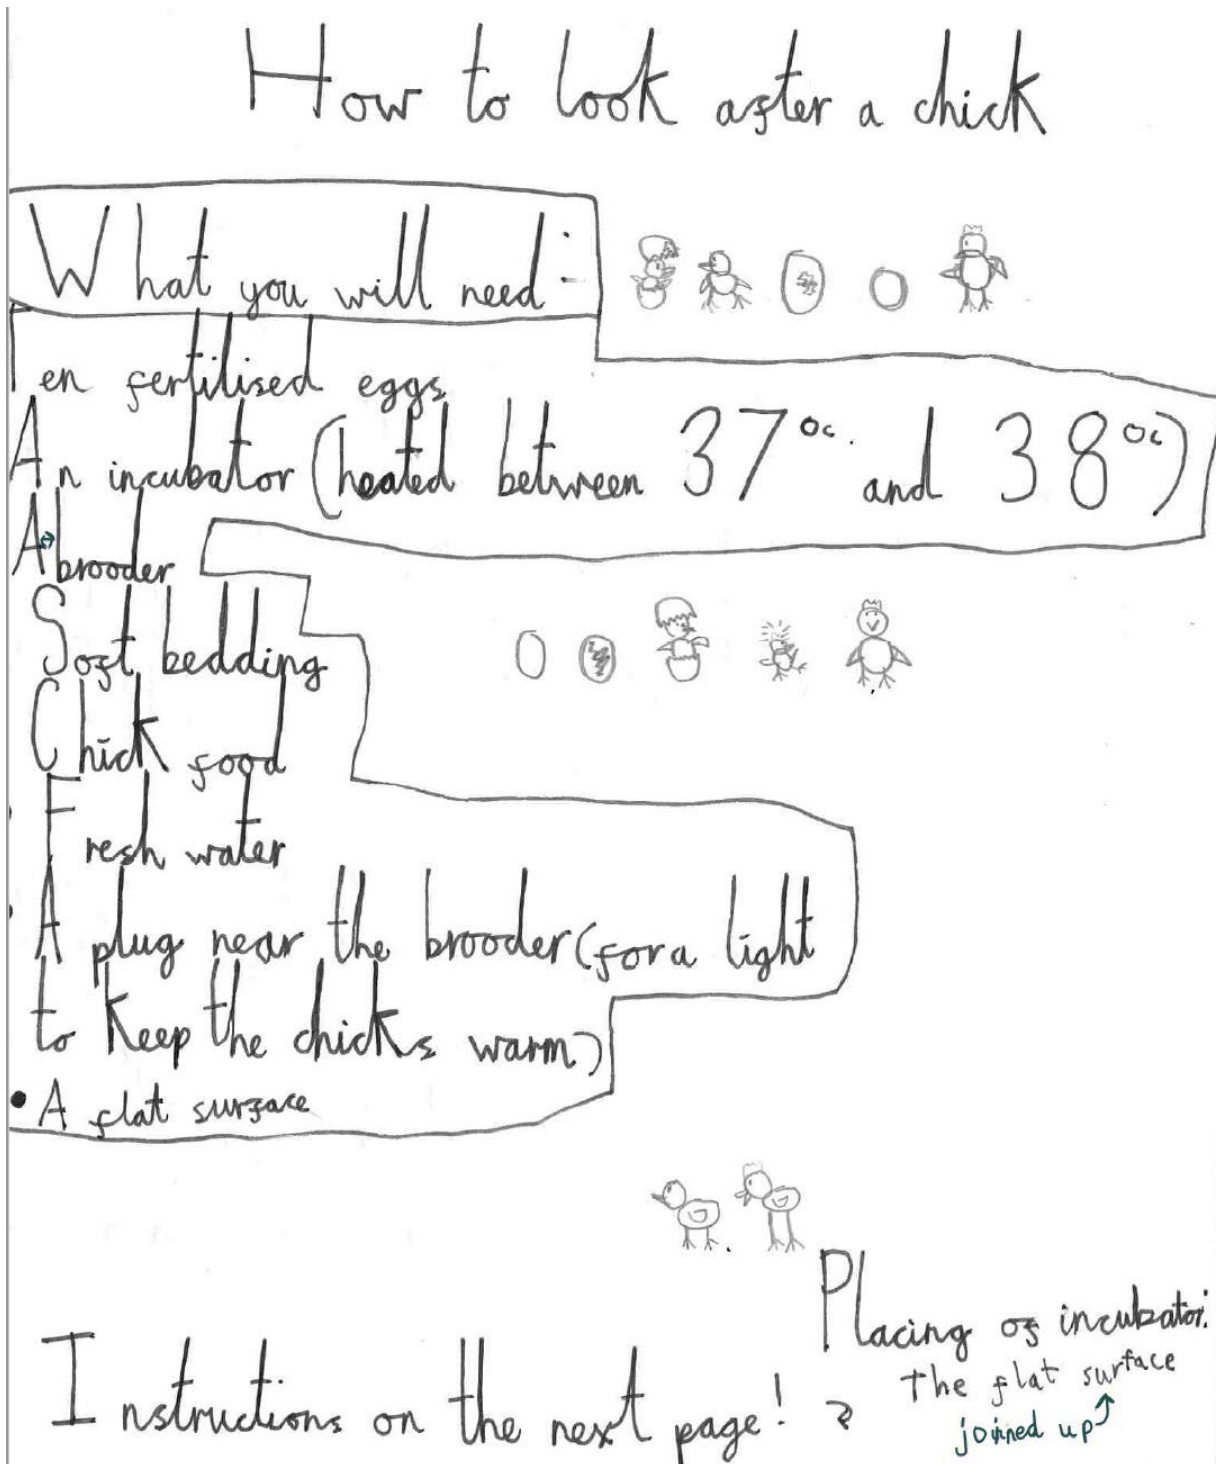 How to look after a chick
What you will need:-
Ten fertilised eggs
An incubator (heated between 37°c. and 38°c)
A brooder
Soft bedding
Chick food
Fresh water
A plug near the brooder (for a light
to keep the chicks warm)
• A flat surface
Placing of incubator:
The flat surface
joined up
Instructions on the next page!